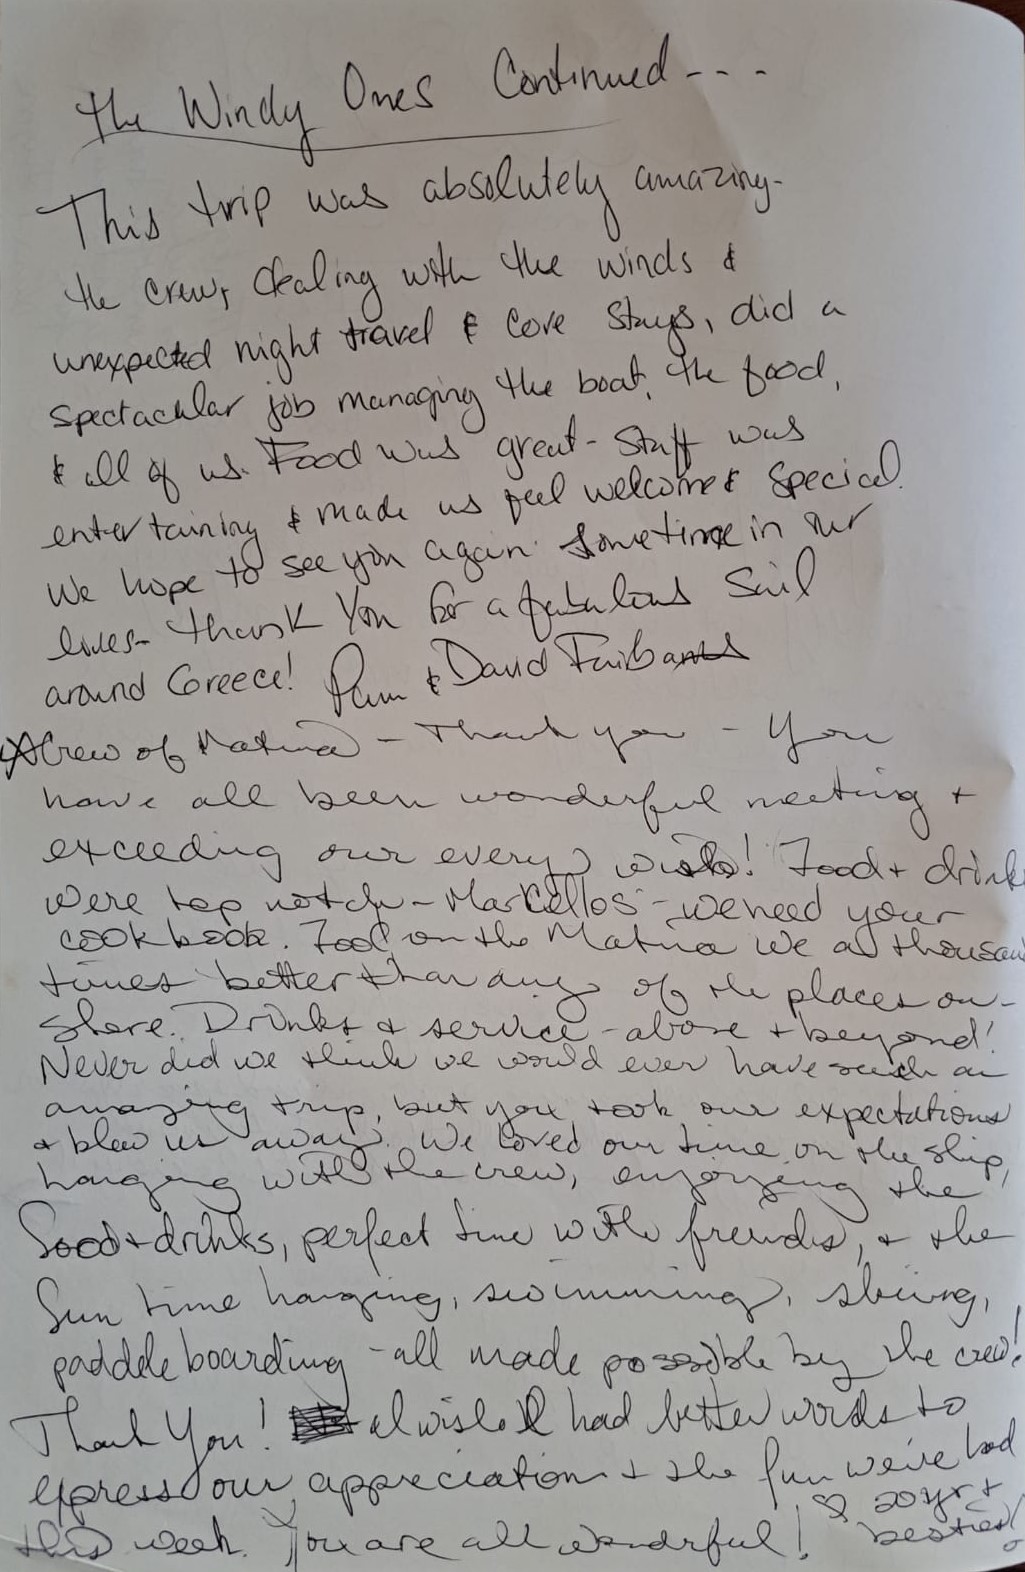 the Windy Ones Continued - - -
This trip was absolutely amazing-
the crew, dealing with the winds &
unexpected night travel & cove stays, did a
spectacular job managing the boat, the food,
& all of us. Food was great - Staff was
entertaining & made us feel welcome & special.
We hope to see you again sometime in our
lives- Thank You for a fabulous Sail
around Greece! Pam & David Fairbanks
Crew of Matina - Thank you - You
have all been wonderful meeting +
exceeding our every wish! Food + drink
were top notch - Markellos - we need your
cookbook. Food on the Matina we a thousan
times better than any of the places on-
shore. Drinks + service - above + beyond!
Never did we think we would ever have such an
amazing trip, but you took our expectations
+ blew us away. We loved our time on the ship,
hanging with the crew, enjoying the
food + drinks, perfect time with friends, + the
Sun time hanging, swimming, skiing,
paddle boarding - all made possible by the crew!
Thank You! I wish I had better words to
express our appreciation + the fun we've had
this week. You are all wonderful! ♡ 20 yr +
besties!